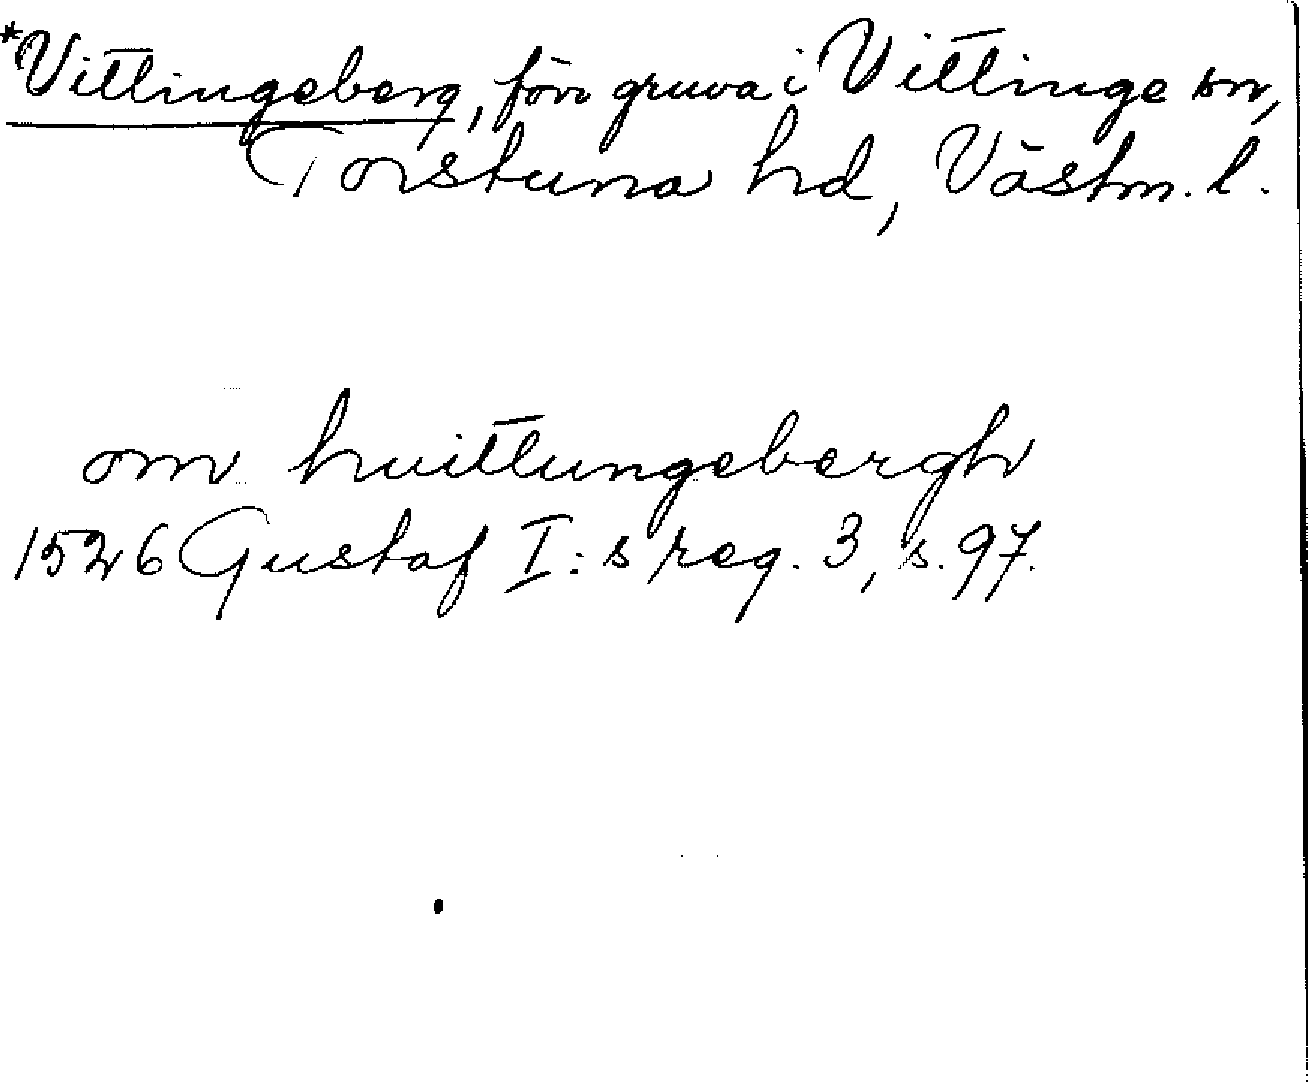 *Vittingeberg, förr gruva i Vittinge sn,
Torstuna hd, Västm. l.
om huittungebergh
1526 Gustaf I:s reg. 3, s. 97.